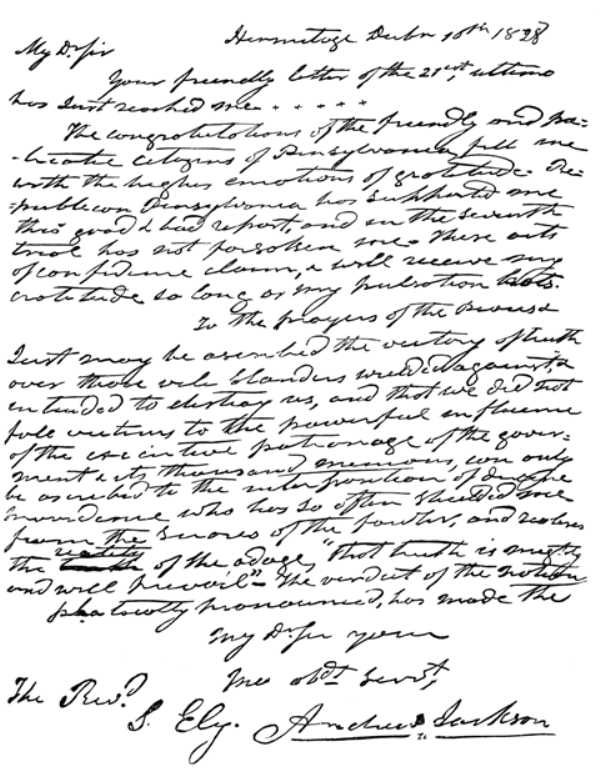 Hermitage Decbr 10th 1828
My Dr Sir
Your friendly letter of the 21rst, ultimo
has Just reached me . . . . . .
The congratulations of the friendly and pa=
-triotic citizens of Pensylvania fill me
with the highes emotions of gratitude. Re=
=publicon Pensylvania has supported me
thro good & bad report, and in the seventh
trial has not forsaken me. These acts
of confidence claim, & will receive my
gratitude so long as my pulsation
To the prayers of the
Just may be ascribed the victory of truth
over those vile slanders against, &
intended to destroy us, and that we did not
fall victims to the powerful influence
of the patronage of the gover=
ment & its thousand, can only
be ascribed to the interposition of
providence who has so often me
from the snares of the fowler, and
the reality of the adage, "that truth is mighty
and will prevail" - The verdict of the nation
pronounced, has made the
My Dr Sir your
obdt Servt,
The Revd.
S. Ely. Andrew Jackson